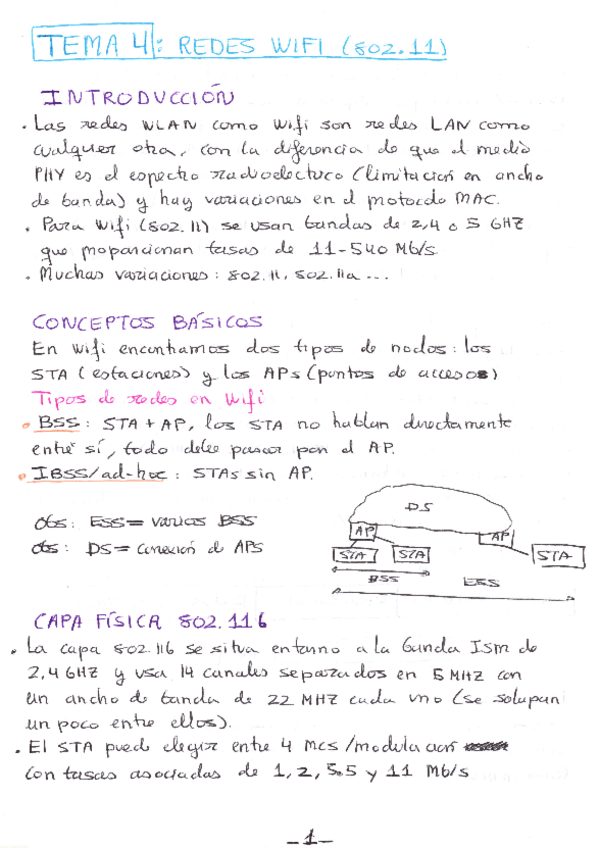 TEMA 4: REDES WIFI (802.11)
INTRODUCCIÓN
· Las redes WLAN como Wifi son redes LAN como
cualquier otra, con la diferencia de que el medio
PHY es el espectro radioelectrico (limitación en ancho
de banda) y hay variaciones en el protocolo MAC.
· Para Wifi (802.11) se usan bandas de 2,4 o 5 GHZ
que proporcionan tasas de 11-540 Mb/s.
· Muchas variaciones: 802.11, 802.11a ...
CONCEPTOS BÁSICOS
En wifi encontramos dos tipos de nodos: los
STA (estaciones) y los APs (puntos de accesos)
Tipos de redes en Wifi
· BSS: STA + AP, los STA no hablan directamente
entre sí, todo debe pasar por el AP.
· IBSS/ad-hoc: STAs sin AP.
Obs: ESS = varios BSS
Obs: DS = conexión de APs
DS
AP
AP
STA
STA
STA
BSS
ESS
CAPA FÍSICA 802.11b
· La capa 802.11b se situa entorno a la banda Ism de
2,4 GHZ y usa 14 canales separados en 5 MHZ con
un ancho de banda de 22 MHZ cada uno (se solapan
un poco entre ellos).
· El STA puede elegir entre 4 mcs/modulación
con tasas asociadas de 1, 2, 5.5 y 11 Mb/s
-1-